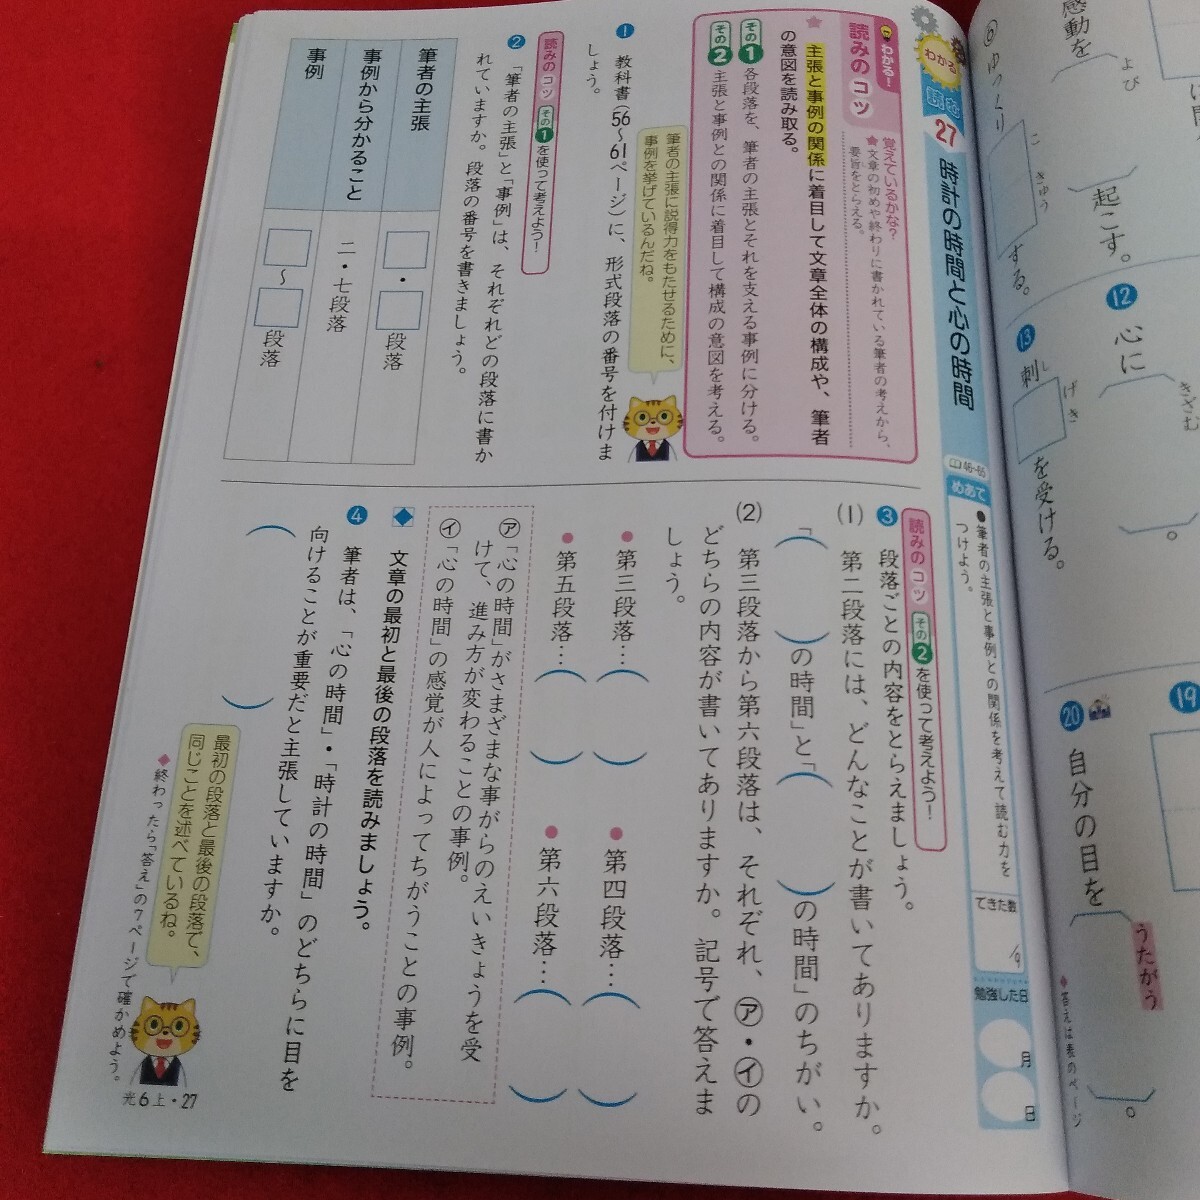 感動を
よび
起こす。
⑥
ゆっくり
こ
きゅう
する。
⑫
心に
きざむ
。
⑬
刺
し
げき
を受ける。
⑲
⑳
自分の目を
うたがう
。
◆答えは表のページ
わかる
読む
27
時計の時間と心の時間
46~65
めあて
●筆者の主張と事例との関係を考えて読む力を
つけよう。
できた数
/9
勉強した日
月
日
わかる!
読みのコツ
覚えているかな?
★文章の初めや終わりに書かれている筆者の考えから、
要旨をとらえる。
★主張と事例の関係に着目して文章全体の構成や、筆者
の意図を読み取る。
その1 各段落を、筆者の主張とそれを支える事例に分ける。
その2 主張と事例との関係に着目して構成の意図を考える。
❶ 教科書(56~61ページ)に、形式段落の番号を付けま
しょう。
筆者の主張に説得力をもたせるために、
事例を挙げているんだね。
読みのコツ その1 を使って考えよう!
❷ 「筆者の主張」と「事例」は、それぞれどの段落に書か
れていますか。段落の番号を書きましょう。
筆者の主張
・ 段落
事例から分かること
二・七段落
事例
~ 段落
読みのコツ その2 を使って考えよう!
❸ 段落ごとの内容をとらえましょう。
(1) 第二段落には、どんなことが書いてありますか。
「( )の時間」と「( )の時間」のちがい。
(2) 第三段落から第六段落は、それぞれ、㋐・㋑の
どちらの内容が書いてありますか。記号で答えま
しょう。
●第三段落…( )
●第四段落…( )
●第五段落…( )
●第六段落…( )
㋐「心の時間」がさまざまな事がらのえいきょうを受
けて、進み方が変わることの事例。
㋑「心の時間」の感覚が人によってちがうことの事例。
◆ 文章の最初と最後の段落を読みましょう。
❹ 筆者は、「心の時間」・「時計の時間」のどちらに目を
向けることが重要だと主張していますか。
( )
最初の段落と最後の段落で、
同じことを述べているね。
◆終わったら「答え」の7ページで確かめよう。
光6上・27